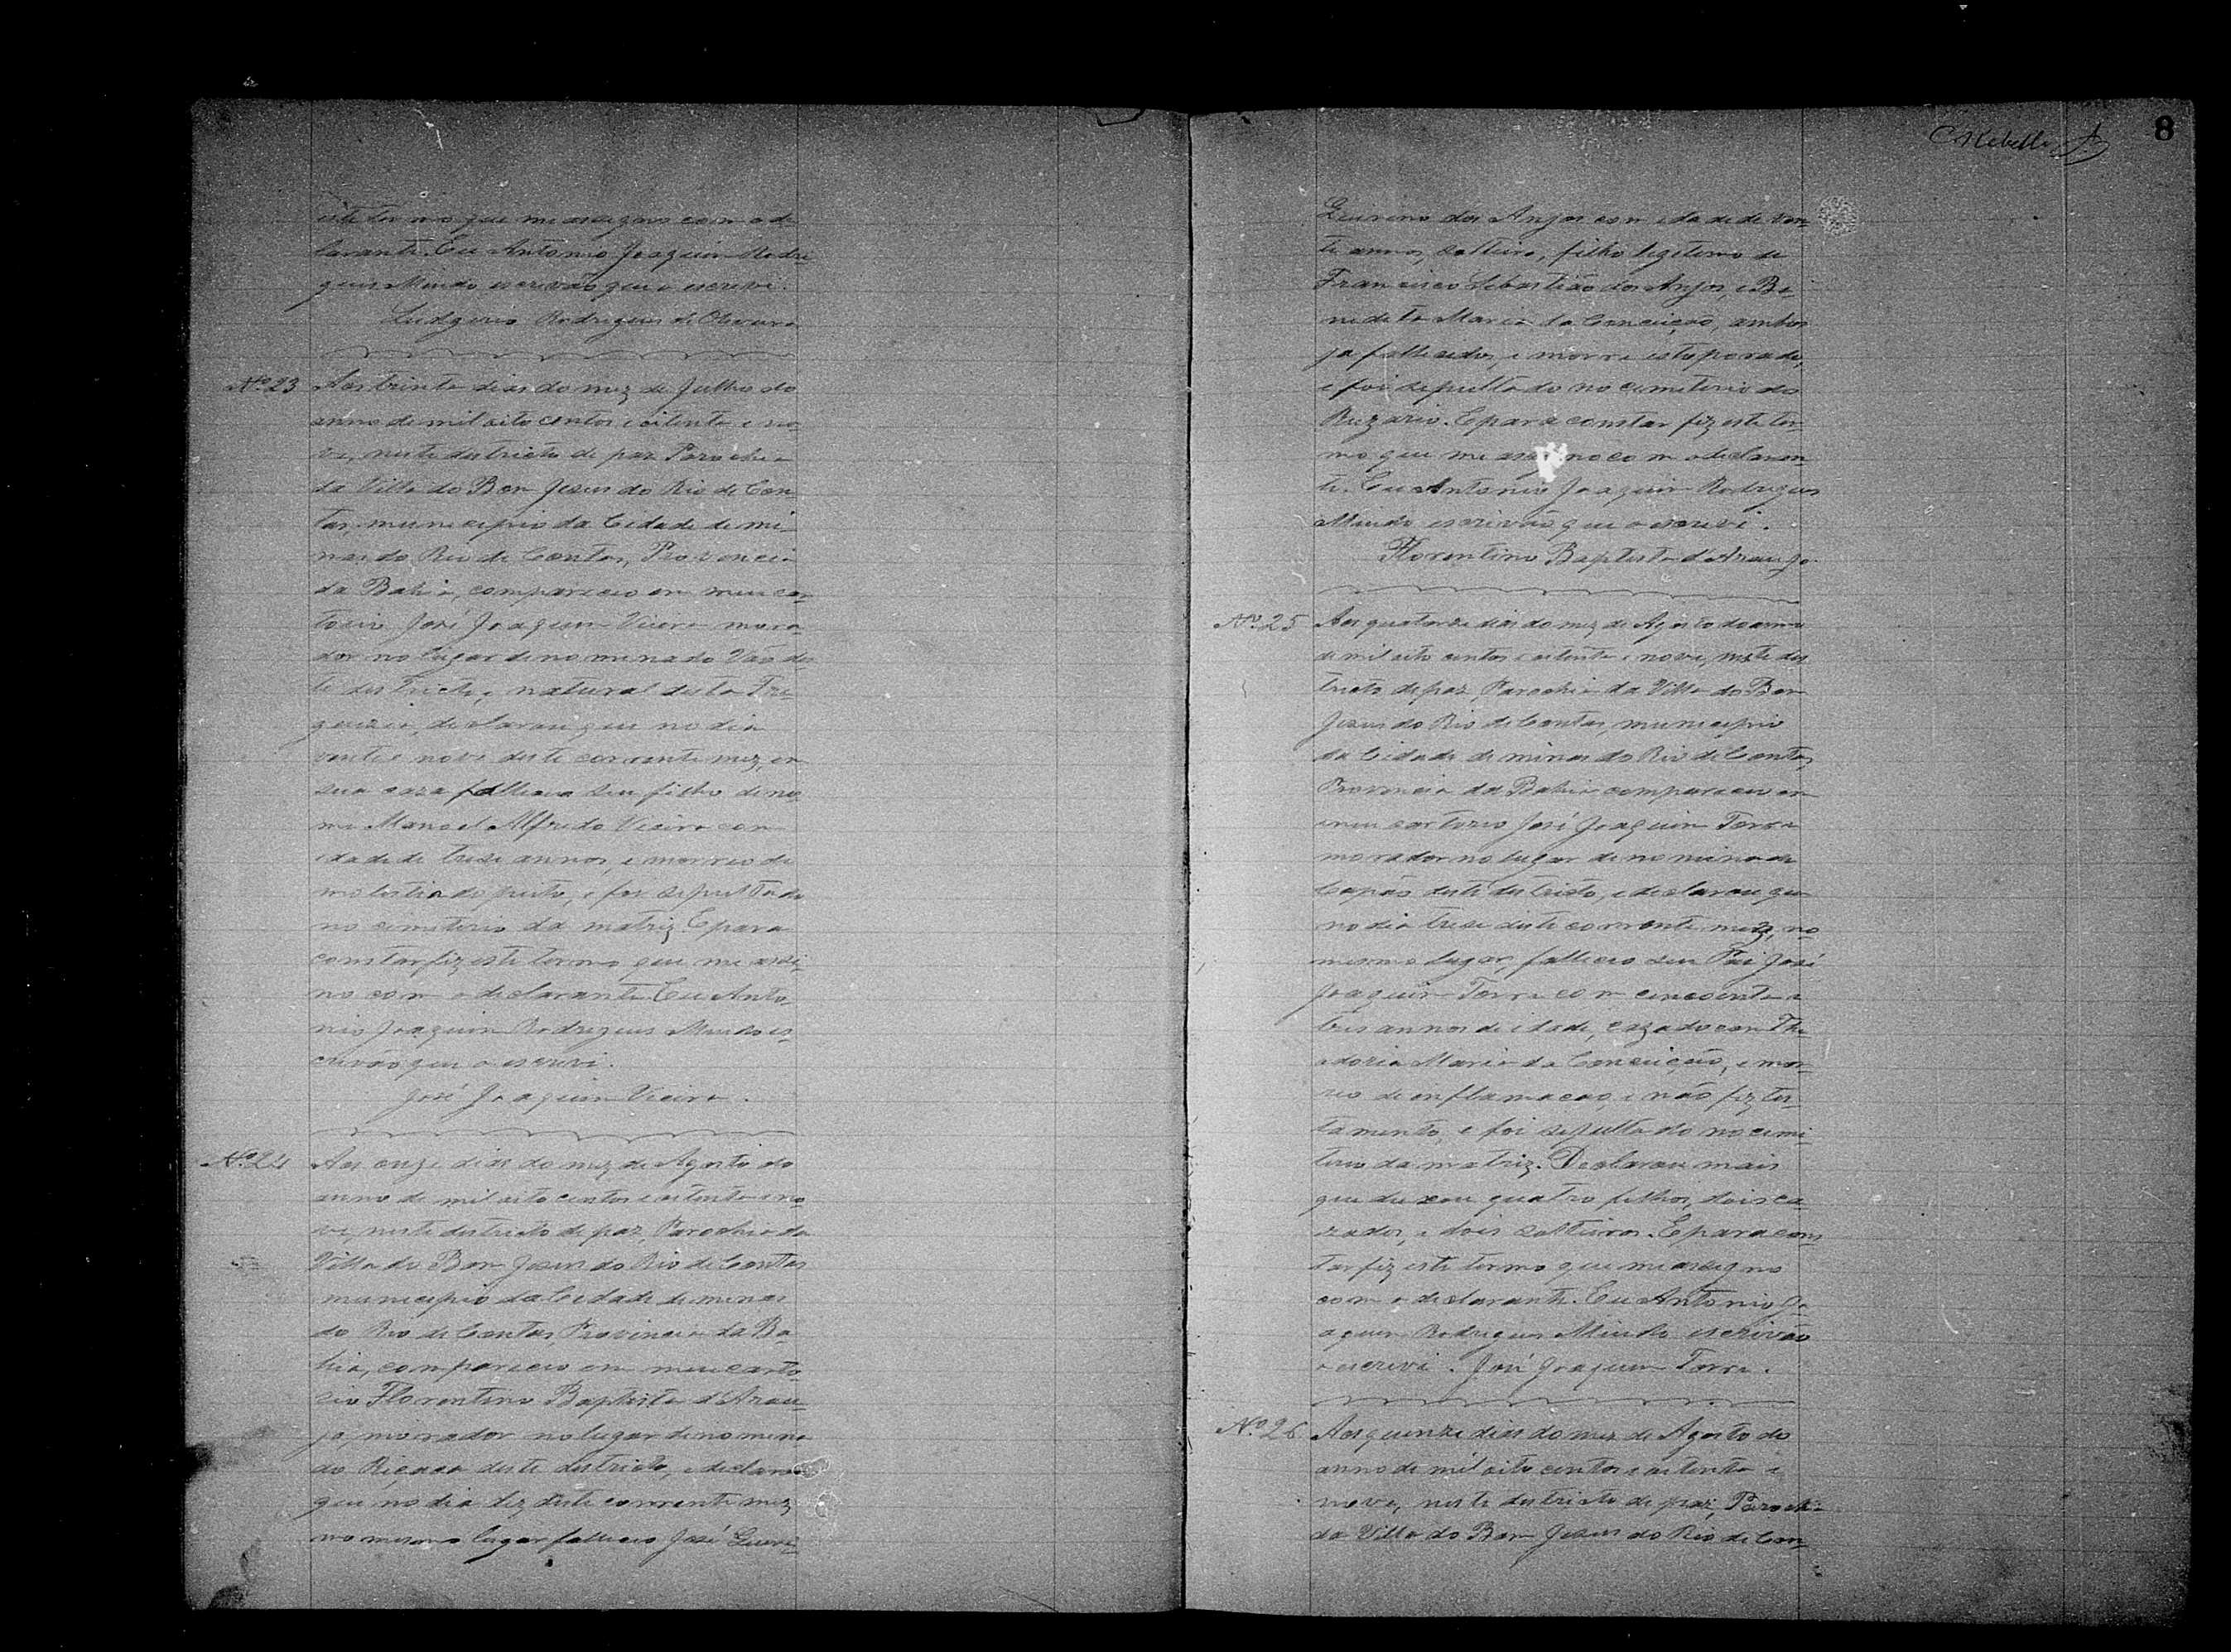 este termo que me assigno com o de
larante. Eu Antonio Joaquim Rodri
gues Mindo escrivão que o escrevi.
Ludgerio Rodrigues de Oliveira
Nº 23 Aos trinta dias do mez de Julho do
anno de mil oito centos e oitenta e no
ve, neste districto de paz Parochia
da Villa do Bom Jesus do Rio de Con
tas, municipio da Cidade de mi
nas do Rio de Contas, Provencia
da Bahia, compareceo em meu car
torio José Joaquim Vieira mora
dor no lugar denominado Vão des
te districto, e natural desta Fre
guezia, declarou que no dia
vinte e nove deste corrente mez, em
sua caza falleceo seu filho de no
me Manoel Alfredo Vieira com
idade de treze annos, e morreo de
molestia do peito, e foi sepultado
no cimiterio da matriz. E para
constar fiz este termo que me assi-
no com o declarante. Eu Anto
nio Joaquim Rodrigues Mindo es
crivão que o escrevi.
José Joaquim Vieira.
Nº 24 Aos onze dias do mez de Agosto do
anno de mil oito centos e oitenta e no
ve, neste districto de paz Parochia da
Villa do Bom Jesus do Rio de Contas
municipio da Cidade de minas
do Rio de Contas, Provincia da Ba
hia, compareceo em meu carto
rio Florentino Baptista d'Arau-
jo, morador no lugar denomina
do deste districto, e declarou
que no dia dez deste corrente mez
no mesmo lugar falleceo José Quiri-
C Rebello 8
Quirino dos Anjos com idade de vin-
te annos, solteiro, filho legitimo de
Francisco Sebastião dos Anjos, e Be-
nedita Maria da Conceição, ambos
ja fallecidos, e morre estuporado,
e foi sepultado no cimiterio do
Ruzario. E para constar fiz este ter-
mo que me assigno com o declaran-
te. Eu Antonio Joaquim Rodrigues
Mindo escrivão que o escrevi.
Florentino Baptista d'Araujo.
Nº 25 Aos quatorze dias do mez de Agosto do anno
de mil oito centos e oitenta e nove, neste dis
tricto de paz, Parochia da Villa do Bom
Jesus do Rio de Contas, municipio
da Cidade de minas do Rio de Contas,
Provincia da Bahia compareceu em
meu cartorio José Joaquim Terra
morador no lugar denominado
Capão deste districto, e declarou que
no dia treze deste corrente mez, no
mesmo lugar, falleceo seu Pai José
Joaquim Terra com cincoenta e
tres annos de idade, cazado com The
odoria Maria da Conceição, e mor-
reo de enflamacao, e não fiz tes-
tamento, e foi sepultado no cimi
terio da matriz. Declarou mais
que deixou quatro filhos, dois ca
zados, e dois solteiros. E para cons
tar fiz este termo que me assigno
com o declarante. Eu Antonio Jo
aquim Rodrigues Mindo escrivão
o escrevi. José Joaquim Terra.
Nº 26 Aos quinze dias do mez de Agosto do
anno de mil oito centos e oitenta e
nove, neste districto de paz, Parochia
da Villa do Bom Jesus do Rio de Con-